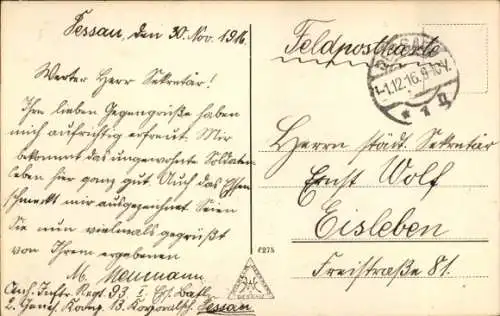 Dessau, den 30. Nov. 1916
Werter Herr Sekretär!
Ihre lieben Gegengrüße haben
mich aufrichtig erfreut. Mir
bekommt das ungewohnte Soldaten-
leben hier ganz gut. Auch das Essen
schmeckt mir ausgezeichnet. Seien
Sie nun vielmals gegrüßt
von Ihrem ergebenen
M. Neumann
Inftr. Regt. 93 I. Batl.
2. Komp. 13. Korporalsch. Dessau
6275
Feldpostkarte
DESSAU
1.12.16. 9-10V.
* 1 n
Herrn städt. Sekretär
Ernst Wolf
Eisleben
Freistraße 81.